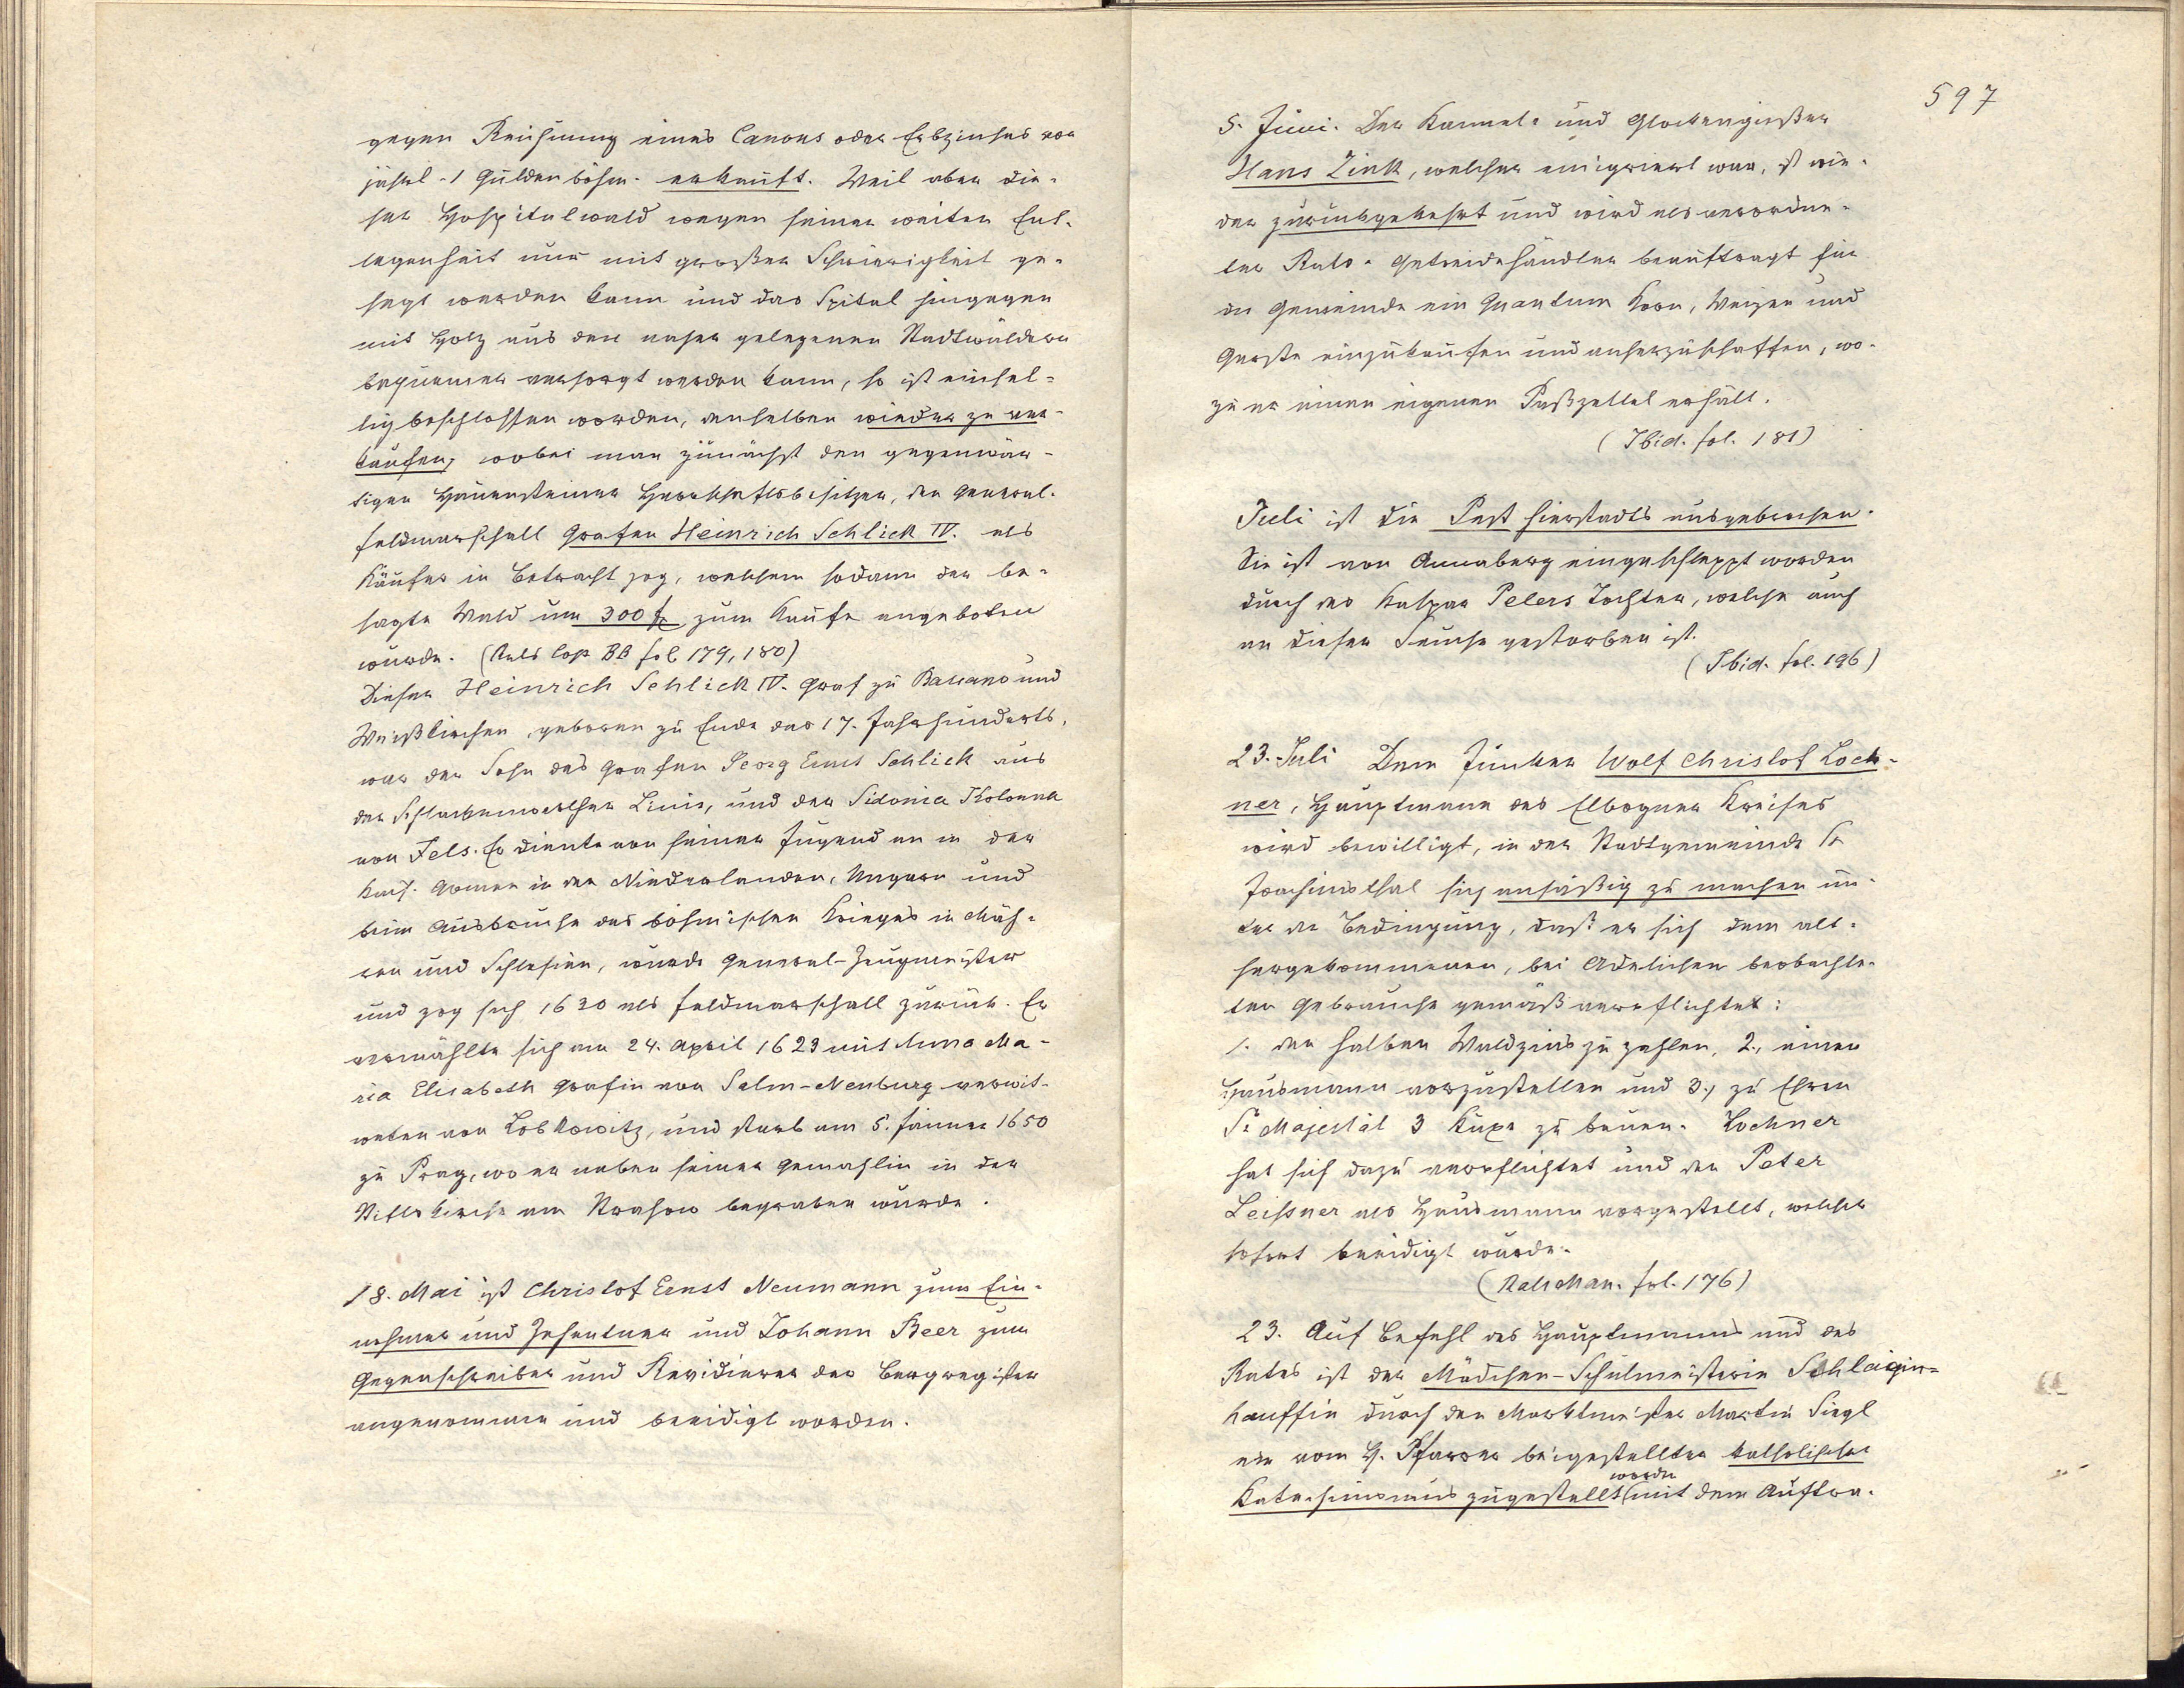 gegen Reichung eines Canons oder Erbzinses von
jährl. 1 Gulden böhm. erkauft. Weil aber die-
ser Hospitalwald wegen seiner weiten Ent-
legenheit nur mit großer Schwierigkeit ge-
hegt werden kann und das Spital hingegen
mit Holz aus den näher gelegenen Stadtwäldern
bequemer versorgt werden kann, so ist einhel-
lig beschlossen worden, denselben wieder zu ver-
kaufen, wobei man zunächst den gegenwär-
tigen Hauensteiner Herrschaftsbesitzer, den General-
feldmarschall Grafen Heinrich Schlick IV. als
Käufer in Betracht zog, welchem sodann der be-
sagte Wald um 300 f zum Kaufe angeboten
wurde. (Rats Cop BB fol 179, 180)
Dieser Heinrich Schlick IV. Graf zu Bassano und
Weißkirchen, geboren zu Ende des 17. Jahrhunderts,
war der Sohn des Grafen Georg Ernst Schlick aus
der Schlackenwerther Linie, und der Sidonia Kolonna
von Fels. Er diente von seiner Jugend an in der
kais. Armee in den Niederlanden, Ungarn und
beim Ausbruche des böhmischen Krieges in Mäh-
ren und Schlesien, wurde General-Zeugmeister
und zog sich 1630 als Feldmarschall zurück. Er
vermählte sich am 24. April 1623 mit Anna Ma-
ria Elisabeth Gräfin von Salm-Neuburg verwit-
weten von Lobkowitz, und starb am 5. Jänner 1650
zu Prag, wo er neben seiner Gemahlin in der
Stiftskirche am Strahow begraben wurde.
18. Mai ist Christof Ernst Neumann zum Ein-
nehmer und Zehentner und Johann Beer zum
Gegenschreiber und Revidierer der Bergregister
angenommen und beeidigt worden.
597
5. Juni. Der Kannel- und Glockengießer
Hans Zink, welcher emigriert war, ist wie-
der zurückgekehrt und wird als verordne-
ter Rats-Getreidehändler beauftragt für
die Gemeinde ein Quantum Korn, Weizen und
Gerste einzukaufen und anherzuschaffen, wo-
zu er einen eigenen Paßzettel erhält.
(Ibid. fol. 181)
Juli ist die Pest hierstadts ausgebrochen.
Sie ist von Annaberg eingeschleppt worden
durch des Kaspar Peters Tochter, welche auch
an dieser Seuche gestorben ist.
(Ibid. fol. 196)
23. Juli Dem Junker Wolf Christof Loch-
ner, Hauptmann des Elbogner Kreises
wird bewilligt, in der Stadtgemeinde St
Joachimsthal sich ansäßig zu machen un-
ter der Bedingung, daß er sich dem alt-
hergekommenen, bei Adelichen beobachte-
ten Gebrauche gemäß verpflichtet:
1. den halben Waldzins zu zahlen, 2., einen
Hausmann vorzustellen und 3., zu Ehren
Sr Majestät 3 Kuxe zu bauen. Lochner
hat sich dazu verpflichtet und den Peter
Leissner als Hausmann vorgestellt, welcher
sofort beeidigt wurde.
(Rats Man. fol. 176)
23. Auf Befehl des Hauptmanns und des
Rates ist der Mädchen-Schulmeisterin Schlaigin-
hauffin durch den Marktmeister Martin Siegl
ein vom H. Pfarrer beigestellter katholischer
Katechismus zugestellt worden mit dem Auftra-